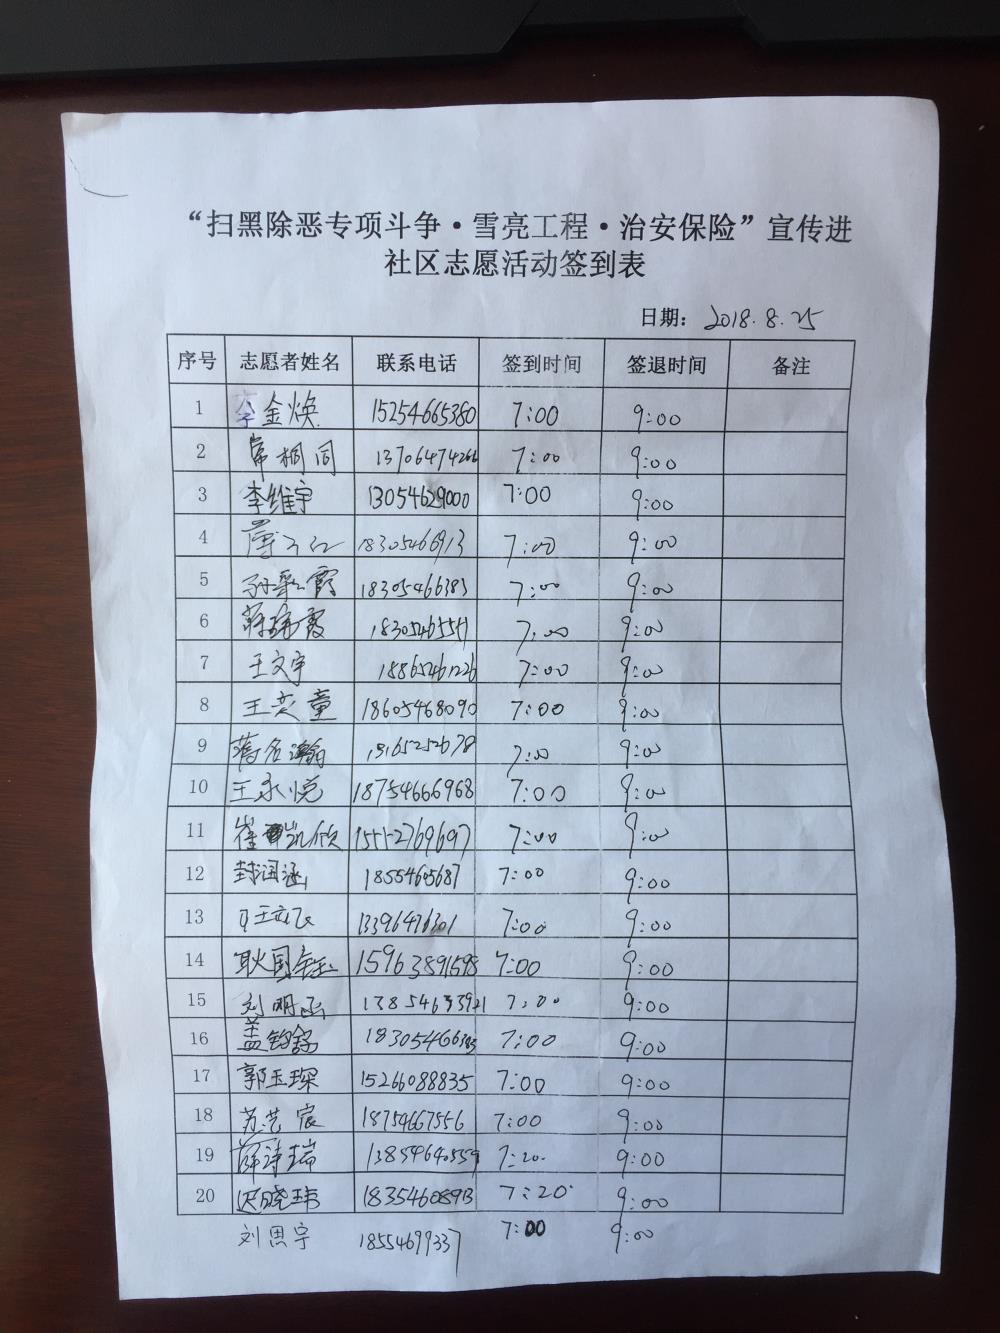 “扫黑除恶专项斗争·雪亮工程·治安保险”宣传进
社区志愿活动签到表
日期: 2018.8.25
序号 志愿者姓名 联系电话 签到时间 签退时间 备注
1 李金焕 15254665380 7:00 9:00
2 常桐同 7:00 9:00
3 李维宇 13054629000 7:00 9:00
4 18305466913 7:00 9:00
5 孙彩霞 18305466383 7:00 9:00
6 7:00 9:00
7 王文宇 18865461226 7:00 9:00
8 王奕童 18605468090 7:00 9:00
9 7:00 9:00
10 王永悦 18754666968 7:00 9:00
11 崔凯欣 15552769697 7:00 9:00
12 封润涵 1855465687 7:00 9:00
13 13396476301 7:00 9:00
14 耿国钰 15963891598 7:00 9:00
15 刘明函 13854633921 7:00 9:00
16 盖钧铭 7:00 9:00
17 郭玉琛 15266088835 7:00 9:00
18 苏艺宸 18754667556 7:00 9:00
19 薛诗瑞 13854640559 7:20 9:00
20 迟晓玮 18354608913 7:20 9:00
刘思宇 18554699337 7:00 9:00